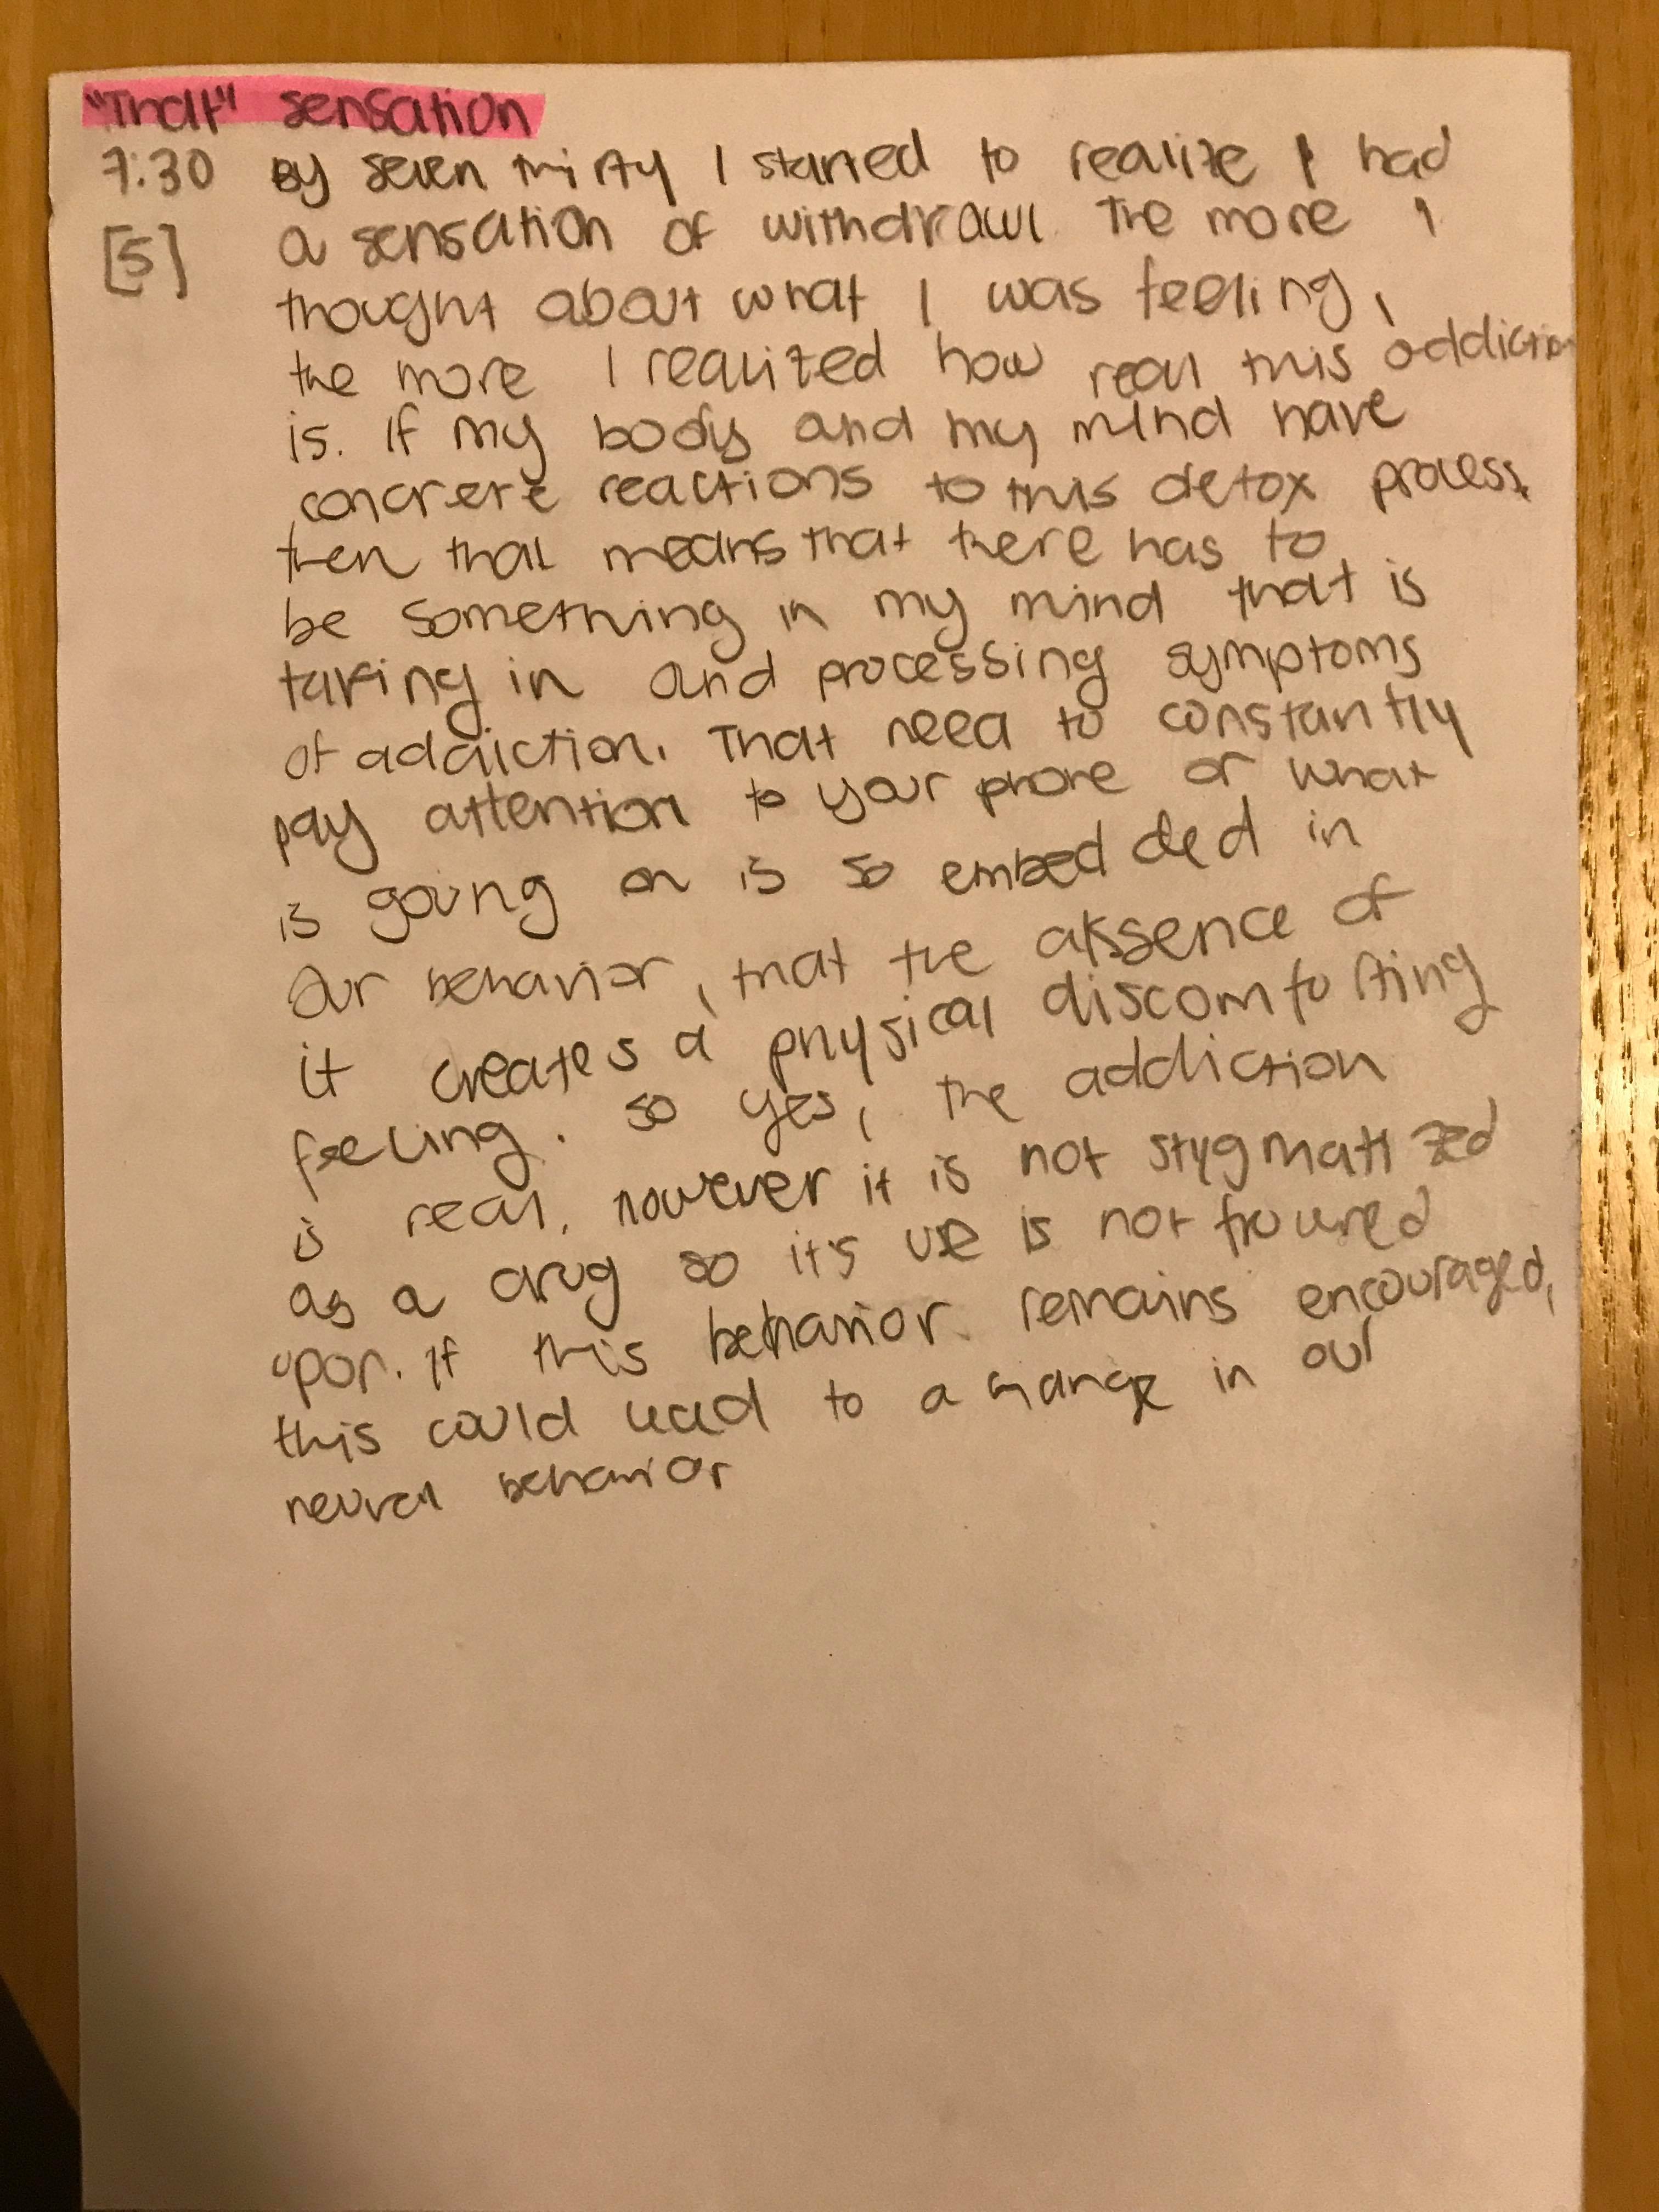 "That" sensation
7:30 By seven thirty I started to realize I had
[5] a sensation of withdrawl. The more I
thought about what I was feeling,
the more I realized how real this addiction
is. If my body and my mind have
concrete reactions to this detox process,
then that means that there has to
be something in my mind that is
taking in and processing symptoms
of addiction. That need to constantly
pay attention to your phone or what
is going on is so embedded in
our behavior, that the absence of
it creates a physical discomforting
feeling. So yes, the addiction
is real, however it is not stygmatized
as a drug so it's use is not frouned
upon. If this behavior remains encouraged,
this could lead to a change in our
neural behavior